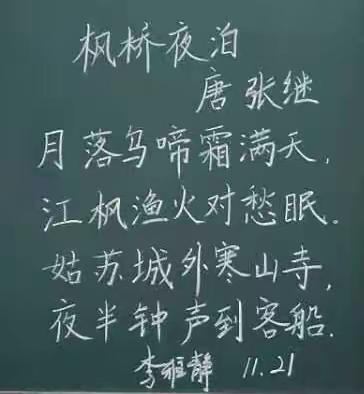 枫桥夜泊
唐 张继
月落乌啼霜满天,
江枫渔火对愁眠.
姑苏城外寒山寺,
夜半钟声到客船.
李雅静 11.21